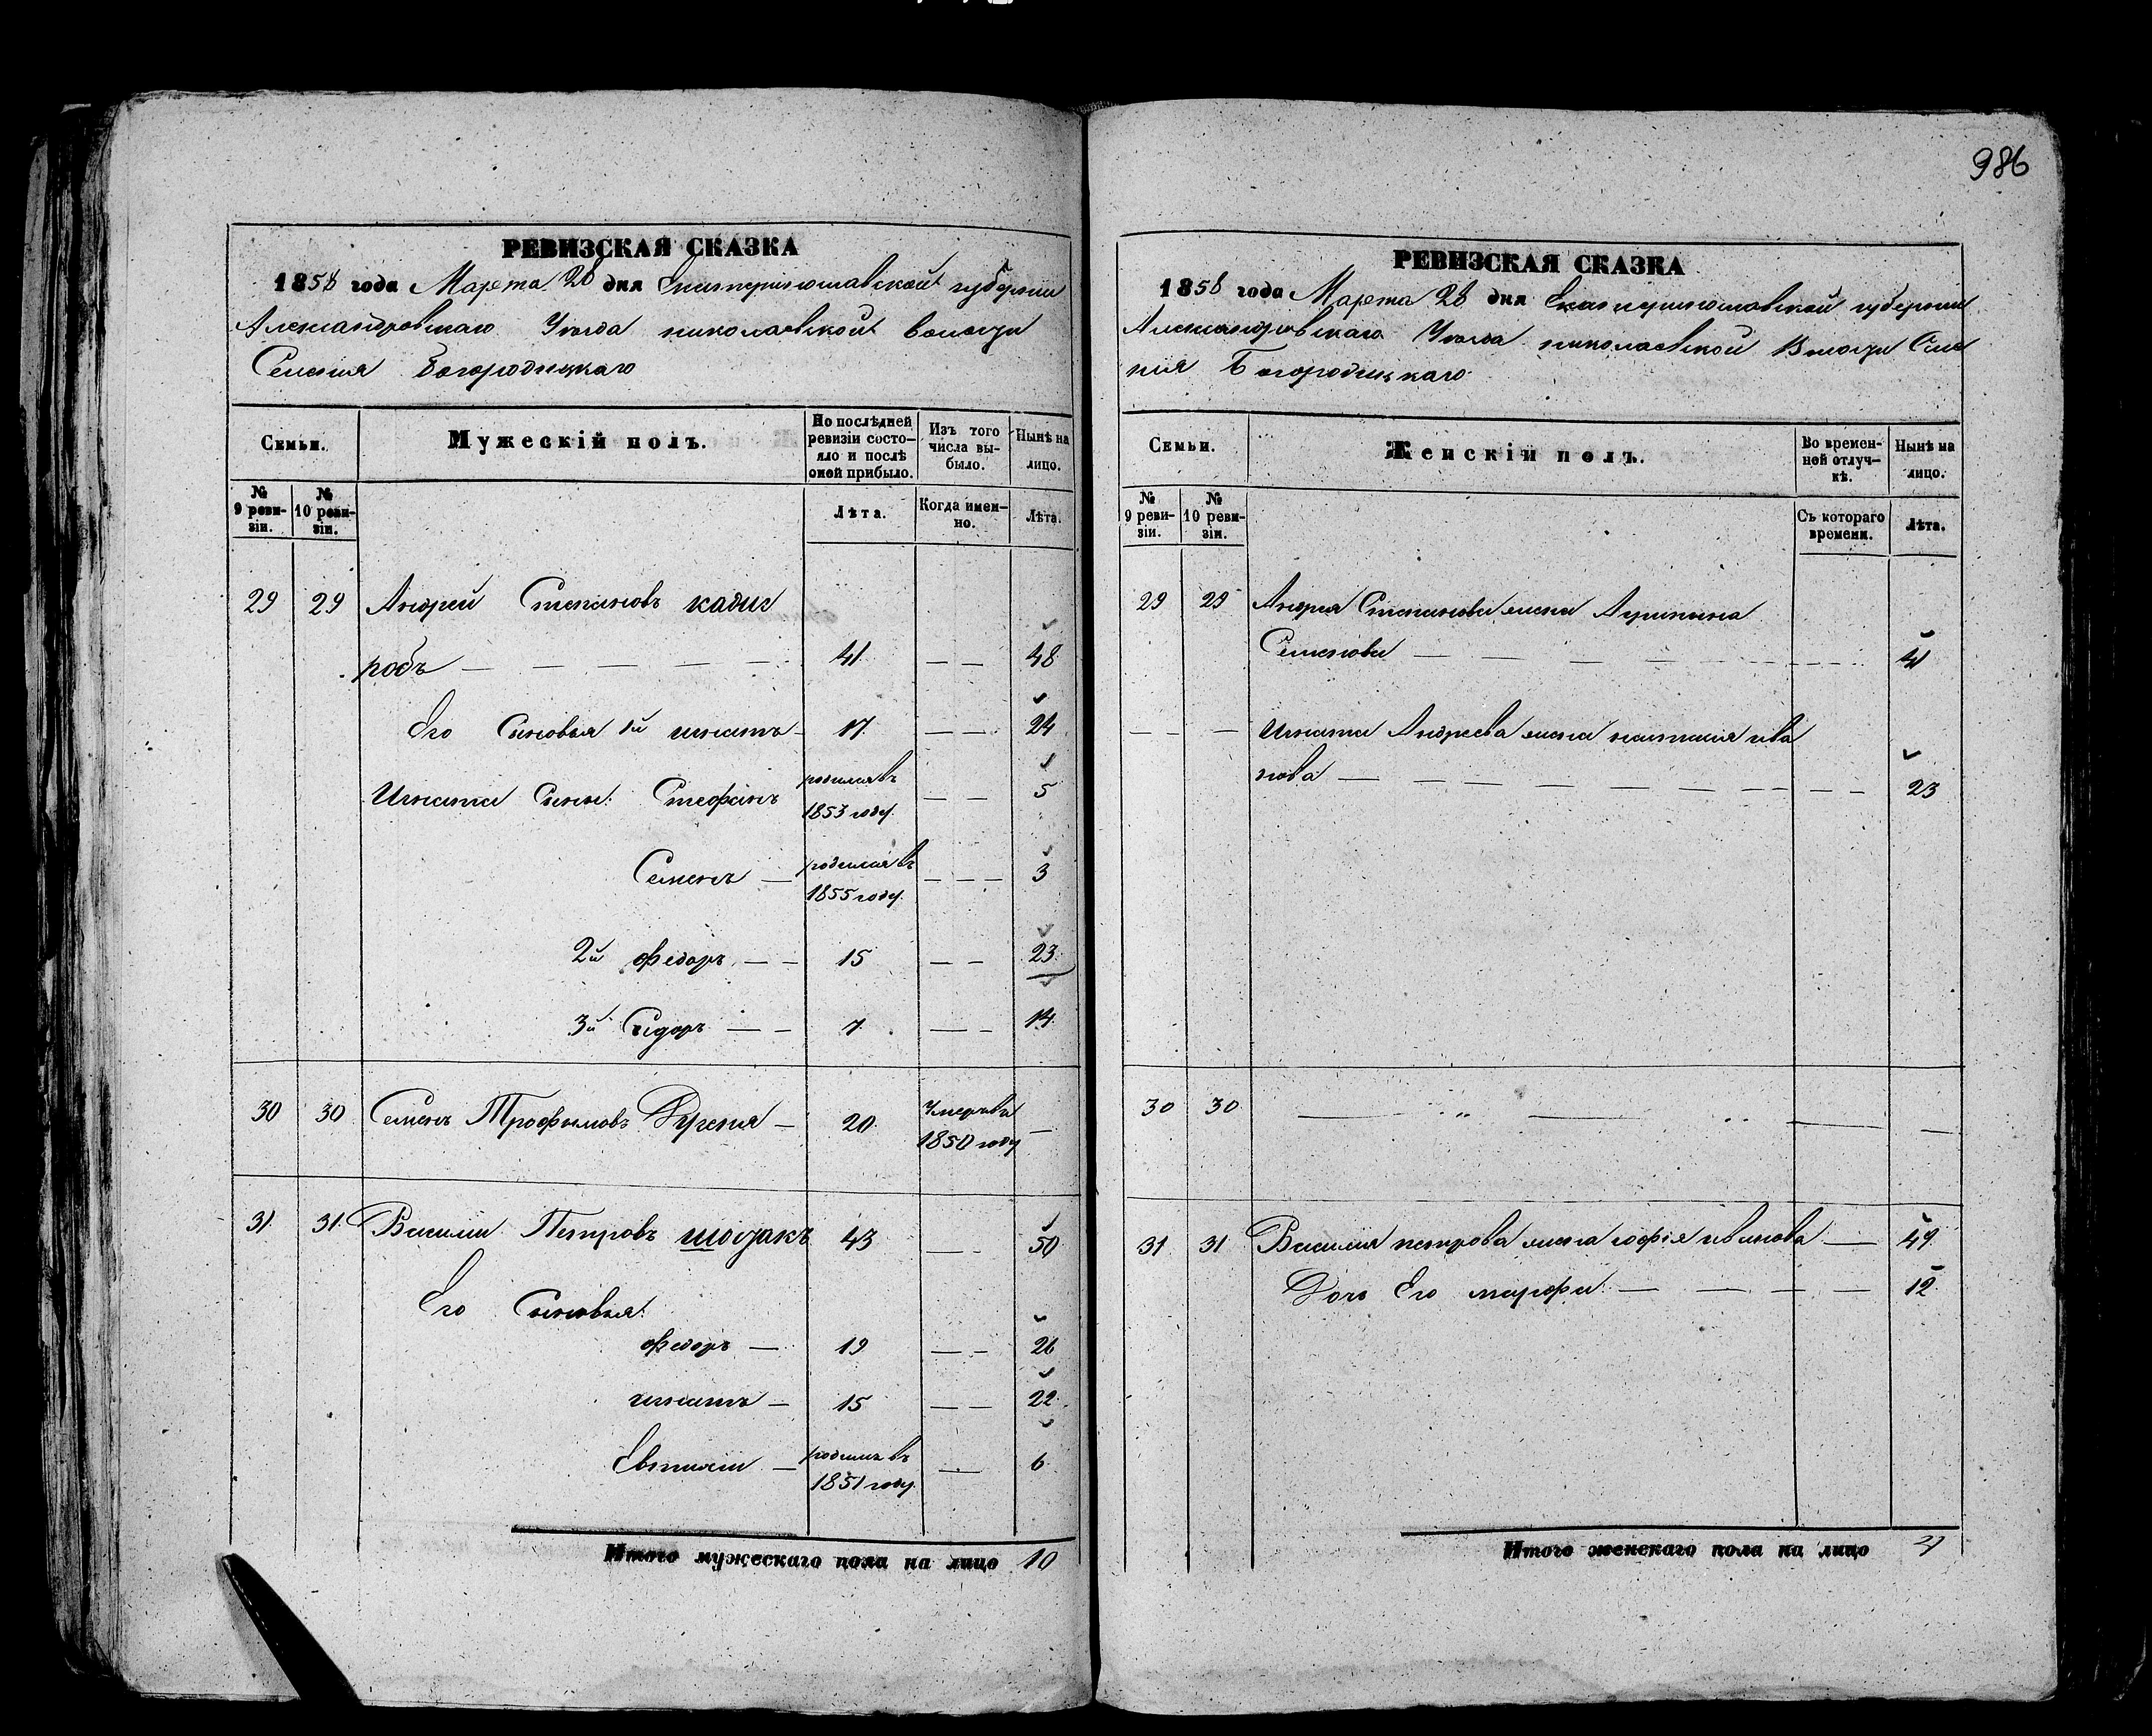 986
РЕВИЗСКАЯ СКАЗКА
1858 года Марта 28 дня Екатеринославской губернии
Александровскаго Уезда николаевской волости
Селения Богородицкаго
Семьи.
Мужескій полъ.
По послѣдней ревизіи состо-яло и послѣ оной прибыло.
Изъ того числа вы-было.
Нынѣ на лицо.
№ 9 реви-зіи.
№ 10 реви-зіи.
Лѣта.
Когда имен-но.
Лѣта.
29 29 Андрей Степановъ кадиг
робъ — 41 — — 48
Его Сыновья 1й игнатъ — 17 — — 24
Игната Сынъ: Стефанъ родился въ 1853 году — — 5
Семенъ — родился въ 1855 году — — — 3
2й федоръ — — 15 — — 23
3й Сидоръ — — 7 — — 14
30 30 Семенъ Трофымовъ Дуреня — 20 Умеръ въ 1850 году —
31 31 Василий Петровъ шостакъ 43 — — 50
Его Сыновья:
федоръ — 19 — — 26
игнатъ — 15 — — 22
Евтихий — родился въ 1851 году — 6
Итого мужескаго пола на лицо 10
РЕВИЗСКАЯ СКАЗКА
1858 года Марта 28 дня Екатеринославской губернии
Александровскаго Уезда николаевской Волости Селе
ния Богородицкаго
Семьи.
Женскій полъ.
Во времен-ной отлуч-кѣ.
Нынѣ на лицо.
№ 9 реви-зіи.
№ 10 реви-зіи.
Съ котораго времени.
Лѣта.
29 29 Андрея Степанова жена Агрипина
Семенова — 41
— — — Игната Андреева жена наталия ива
нова — 23
30 30 — „ — „ — —
31 31 Василия петрова жена софія иванова — 49
Дочь Его марфа — 12
Итого женскаго пола на лицо 4